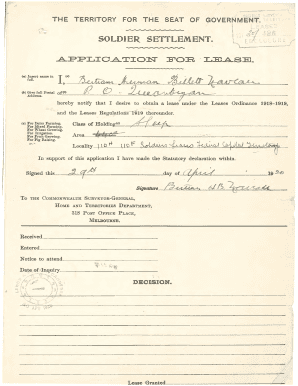 THE TERRITORY FOR THE SEAT OF GOVERNMENT.
SOLDIER SETTLEMENT.
APPLICATION FOR LEASE.
(a) Insert name in full. I, (a) Bertram Herman Billett
(b) Give full Postal Address. of (b) P. O. Queanbeyan
hereby notify that I desire to obtain a lease under the Leases Ordinance 1918-1919,
and the Leases Regulations 1919 thereunder.
(c) For Dairy Farming.
For Mixed Farming.
For Wheat Growing.
For Irrigation.
For Fruit Growing.
For Pig Raising.
Class of Holding (c) Sheep
Area
Locality 110A 111F Federal Capital Territory
In support of this application I have made the Statutory declaration within.
Signed this 29th day of April 1920
Signature Bertram H.B.
To the Commonwealth Surveyor-General,
Home and Territories Department,
318 Post Office Place,
Melbourne.
Received
Entered
Notice to attend
Date of Inquiry
DECISION.
Lease Granted